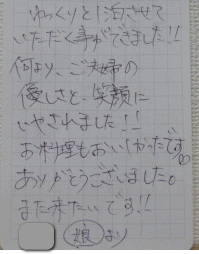 ゆっくりと1泊させて
いただく事ができました!!
何より、ご夫婦の
優しさと、笑顔に
いやされました!!
お料理もおいしかったです♡
ありがとうございました。
また来たいです!!
娘より